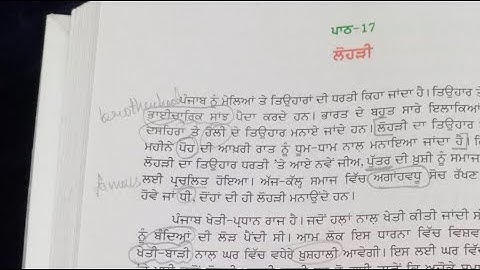 ਪਾਠ-17
ਲੋਹੜੀ
ਪੰਜਾਬ ਨੂੰ ਮੇਲਿਆਂ ਤੇ ਤਿਉਹਾਰਾਂ ਦੀ ਧਰਤੀ ਕਿਹਾ ਜਾਂਦਾ ਹੈ। ਤਿਉਹਾਰ ਤੇ
brotherhood
ਭਾਈਚਾਰਿਕ ਸਾਂਝ ਪੈਦਾ ਕਰਦੇ ਹਨ। ਭਾਰਤ ਦੇ ਬਹੁਤ ਸਾਰੇ ਇਲਾਕਿਆਂ
ਦੁਸਹਿਰਾ ਤੇ ਹੋਲੀ ਦੇ ਤਿਉਹਾਰ ਮਨਾਏ ਜਾਂਦੇ ਹਨ। ਲੋਹੜੀ ਦਾ ਤਿਉਹਾਰ
ਮਹੀਨੇ ਪੋਹ ਦੀ ਆਖ਼ਰੀ ਰਾਤ ਨੂੰ ਧੂਮ-ਧਾਮ ਨਾਲ ਮਨਾਇਆ ਜਾਂਦਾ ਹੈ।
ਲੋਹੜੀ ਦਾ ਤਿਉਹਾਰ ਧਰਤੀ 'ਤੇ ਆਏ ਨਵੇਂ ਜੀਅ, ਪੁੱਤਰ ਦੀ ਖ਼ੁਸ਼ੀ ਨੂੰ ਸਮਾਜ
ਲਈ ਪ੍ਰਚਲਿਤ ਹੋਇਆ। ਅੱਜ-ਕੱਲ੍ਹ ਸਮਾਜ ਵਿੱਚ ਅਗਾਂਹਵਧੂ ਸੋਚ ਰੱਖਣ
ਹੋਵੇ ਜਾਂ ਧੀ, ਦੋਹਾਂ ਦੀ ਹੀ ਲੋਹੜੀ ਮਨਾਉਂਦੇ ਹਨ।
ਪੰਜਾਬ ਖੇਤੀ-ਪ੍ਰਧਾਨ ਰਾਜ ਹੈ। ਜਦੋਂ ਹਲਾਂ ਨਾਲ ਖੇਤੀ ਕੀਤੀ ਜਾਂਦੀ ਸੀ
ਨੂੰ ਬੰਦਿਆਂ ਦੀ ਲੋੜ ਪੈਂਦੀ ਸੀ। ਆਮ ਲੋਕ ਇਸ ਧਾਰਨਾ ਵਿੱਚ ਵਿਸ਼ਵ
ਖੇਤੀ-ਬਾੜੀ ਨਾਲ ਘਰ ਵਿੱਚ ਵਧੇਰੇ ਖ਼ੁਸ਼ਹਾਲੀ ਆਵੇਗੀ। ਇਸ ਲਈ ਘਰ ਵਿੱ